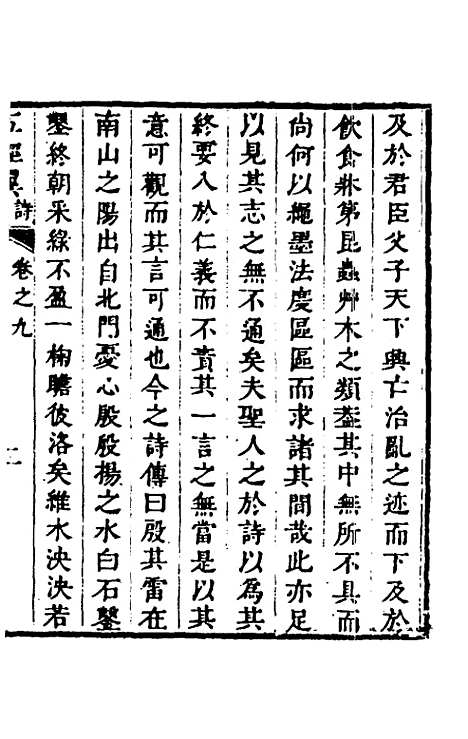 及於君臣父子天下興亡治亂之迹而下及於
飲食牀第昆蟲艸木之類葢其中無所不具而
尙何以繩墨法度區區而求諸其間哉此亦足
以見其志之無不通矣夫聖人之於詩以為其
終要入於仁義而不責其一言之無當是以其
意可觀而其言可通也今之詩傳曰殷其雷在
南山之陽出自北門憂心殷殷楊之水白石鑿
鑿終朝采綠不盈一掬瞻彼洛矣維水泱泱若
五經異 詩 卷之九 二